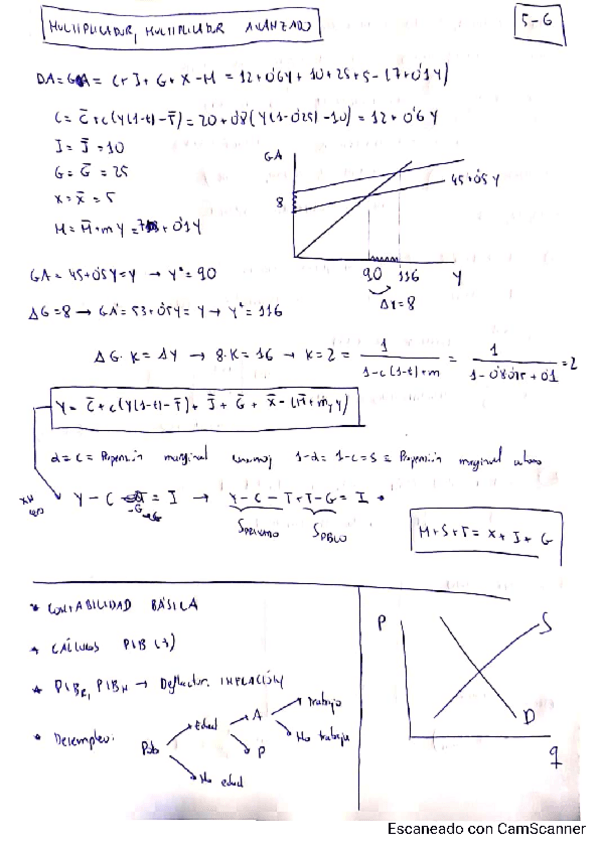 MULTIPLICADOR, MULTIPLICADOR AVANZADO
5-6
DA=GA = C+I+G+X-M = 12+0'6Y+10+25+5-(7+0'1Y)
C = C̄+c(Y(1-t)-T̄) = 20+0'8(Y(1-0'25)-10) = 12+0'6Y
I = Ī = 10
G = Ḡ = 25
X = X̄ = 5
M = M̄+mY = 7+0'1Y
GA
8
45+0'5Y
90
116
Y
ΔY=8
GA = 45+0'5Y=Y → Y* = 90
ΔG=8 → GA' = 53+0'5Y = Y → Y* = 116
ΔG·K = ΔY → 8·K=16 → K=2 = 1/(1-c(1-t)+m) = 1/(1-0'8·0'75+0'1) = 2
Y = C̄+c(Y(1-t)-T̄)+Ī+Ḡ+X̄-(M̄+m,Y)
α = c = Propensión marginal consumo; 1-α = 1-c = s = Propensión marginal ahorro
Y - C - G = I → Y-C-T+T-G = I
S PRIVADO
S PBLCO
M+S+T = X+I+G
* CONTABILIDAD BÁSICA
* CÁLCULOS PIB (3)
* PIBR, PIBN → Deflactor. INFLACIÓN
* Desempleo:
Pob
Edad
No edad
A
P
Trabaja
No trabaja
P
S
D
q
Escaneado con CamScanner